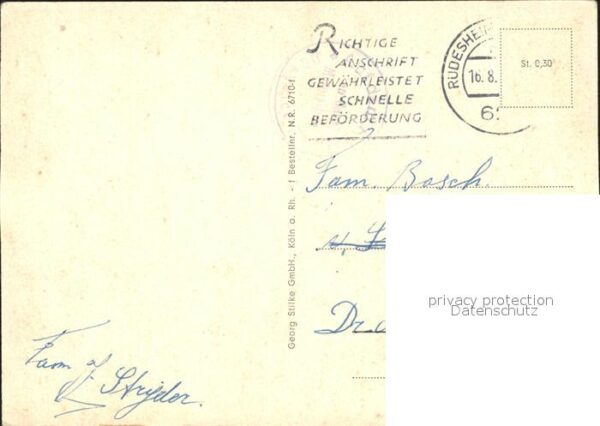 RICHTIGE
ANSCHRIFT
GEWÄHRLEISTET
SCHNELLE
BEFÖRDERUNG
RÜDESHEI
16.8.
62
St. 0,30
Georg Stilke GmbH., Köln a. Rh. - f Bestellnr. N.R. 6710-f
Fam. Bosch.
Dr.
privacy protection
Datenschutz
Fam
Strijder.